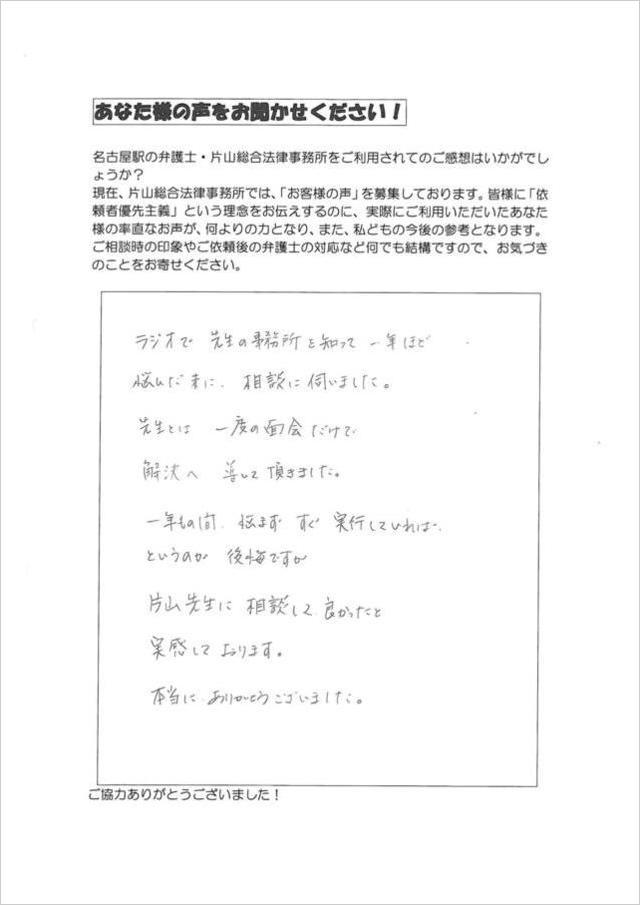 あなた様の声をお聞かせください！
名古屋駅の弁護士・片山総合法律事務所をご利用されてのご感想はいかがでし
ょうか？
現在、片山総合法律事務所では、「お客様の声」を募集しております。皆様に「依
頼者優先主義」という理念をお伝えするのに、実際にご利用いただいたあなた
様の率直なお声が、何よりの力となり、また、私どもの今後の参考となります。
ご相談時の印象やご依頼後の弁護士の対応など何でも結構ですので、お気づき
のことをお寄せください。
ラジオで 先生の事務所を知って 一年ほど
悩んだ末に、相談に伺いました。
先生とは 一度の面会だけで
解決へ 導いて頂きました。
一年もの間、悩まず すぐ 実行していれば、
というのが 後悔ですが
片山先生に 相談して 良かったと
実感して おります。
本当に ありがとうございました。
ご協力ありがとうございました！